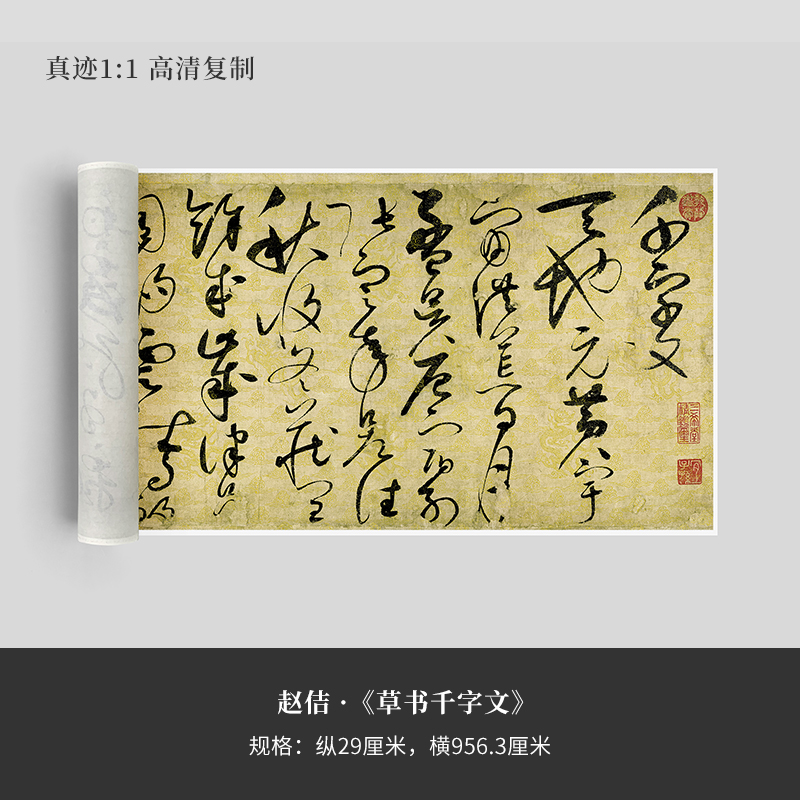 真迹1:1 高清复制
千字文
天地元黄宇
宙洪荒日月
盈昃辰宿列
張寒来暑往
秋收冬藏閏
餘成歲律呂
調陽雲騰
赵佶·《草书千字文》
规格：纵29厘米，横956.3厘米